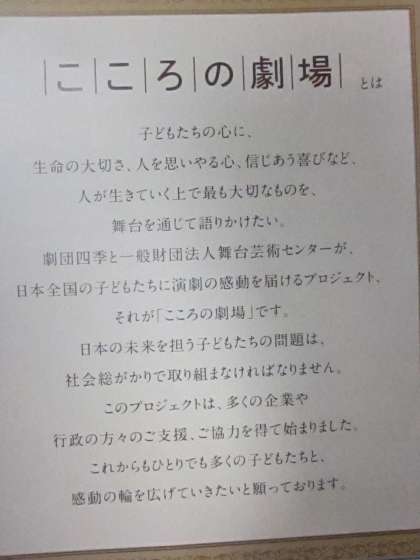 こころの劇場 とは
子どもたちの心に、
生命の大切さ、人を思いやる心、信じあう喜びなど、
人が生きていく上で最も大切なものを、
舞台を通じて語りかけたい。
劇団四季と一般財団法人舞台芸術センターが、
日本全国の子どもたちに演劇の感動を届けるプロジェクト、
それが「こころの劇場」です。
日本の未来を担う子どもたちの問題は、
社会総がかりで取り組まなければなりません。
このプロジェクトは、多くの企業や
行政の方々のご支援、ご協力を得て始まりました。
これからもひとりでも多くの子どもたちと、
感動の輪を広げていきたいと願っております。